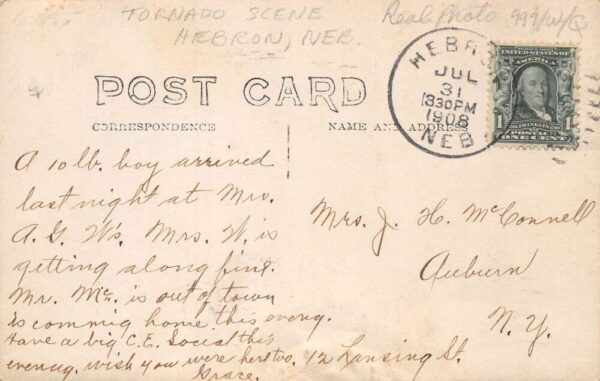 TORNADO SCENE
HEBRON, NEB.
Real Photo
POST CARD
CORRESPONDENCE
NAME AND ADDRESS
HEBRO
JUL
31
1330PM
1908
NEB
UNITED STATES OF
AMERICA
1
FRANKLIN
POSTAGE
ONE CENT
1
A 10 lb. boy arrived
last night at Mrs.
A. G. W's. Mrs. W. is
getting along fine.
Mr. Mc. is out of town
is commig home this eveng.
Have a big C.E. Social this
eveng. wish you were here too.
Grace.
Mrs. J. H. McConnell
Auburn
N. Y.
12 Lansing St.